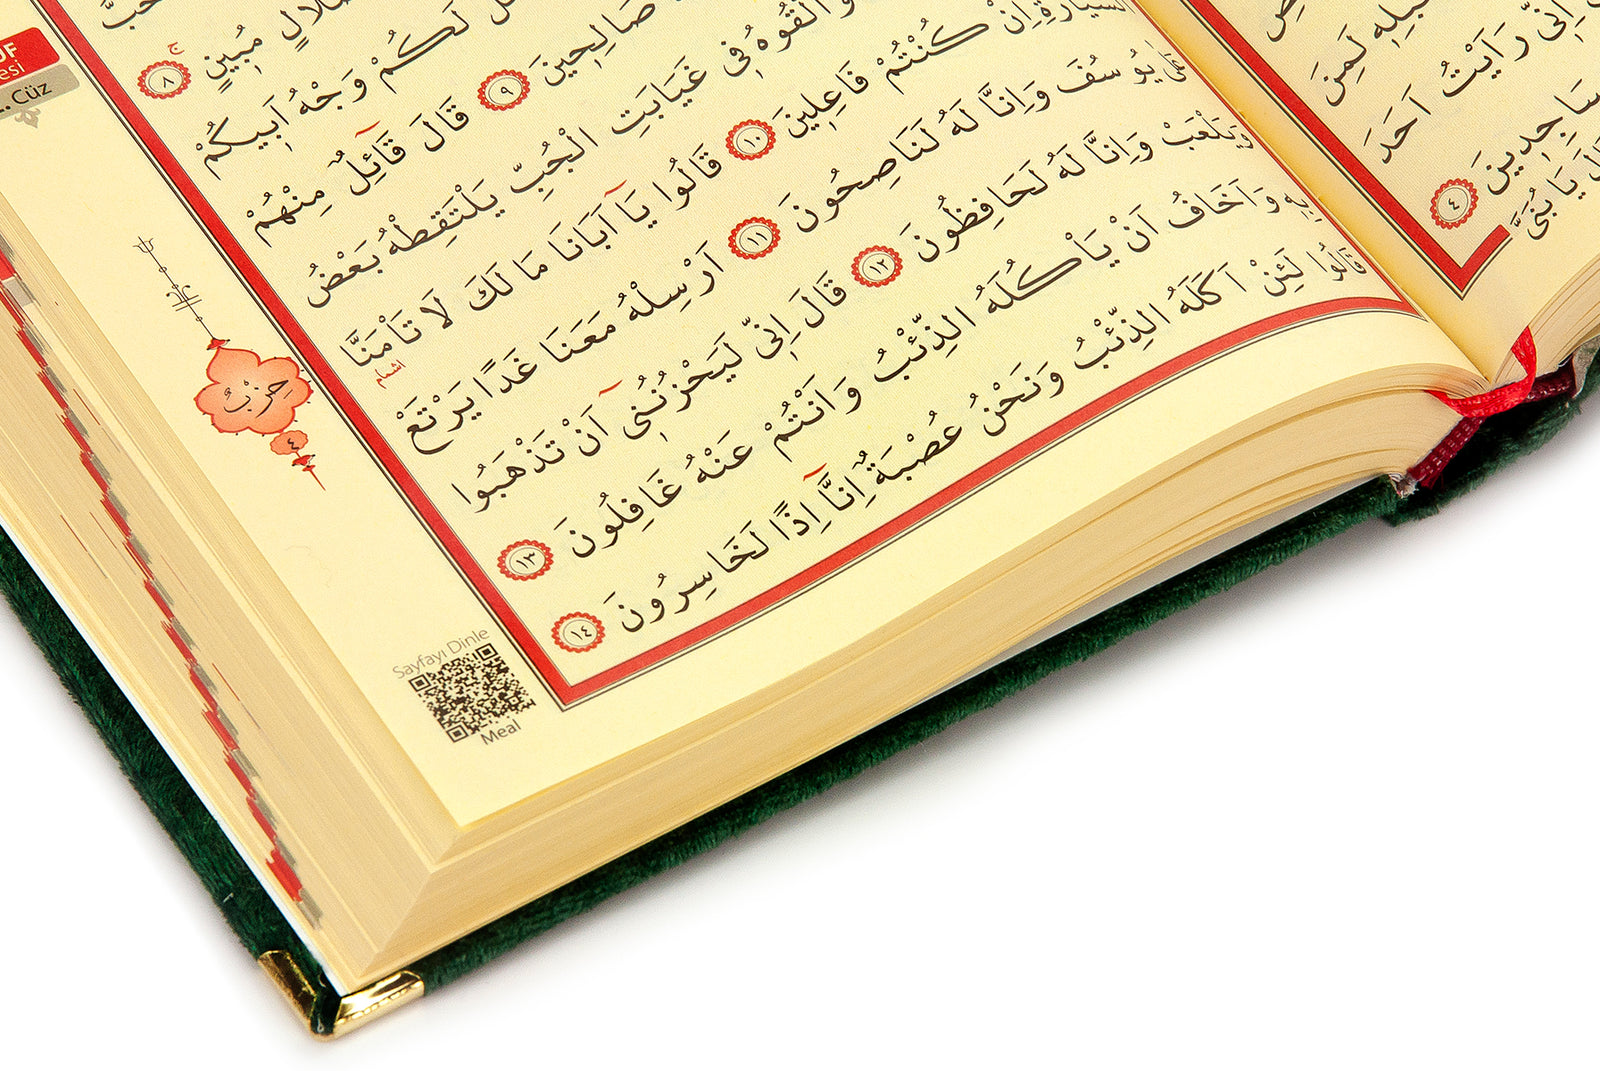 مُبٖينٍۚ ٨
لَكُمْ وَجْهُ اَبٖيكُمْ
صَالِحٖينَ ٩ قَالَ قَٓائِلٌ مِنْهُمْ
وَاَلْقُوهُ فٖى غَيَابَتِ الْجُبِّ يَلْتَقِطْهُ بَعْضُ
السَّيَّارَةِ اِنْ كُنْتُمْ فَاعِلٖينَ ١٠ قَالُوا يَٓا اَبَانَا مَا لَكَ لَا تَأْمَنَّا
اشمام
عَلٰى يُوسُفَ وَاِنَّا لَهُ لَنَاصِحُونَ ١١ اَرْسِلْهُ مَعَنَا غَدًا يَرْتَعْ
وَيَلْعَبْ وَاِنَّا لَهُ لَحَافِظُونَ ١٢ قَالَ اِنّٖى لَيَحْزُنُنٖٓى اَنْ تَذْهَبُوا
بِهٖ وَاَخَافُ اَنْ يَأْكُلَهُ الذِّئْبُ وَاَنْتُمْ عَنْهُ غَافِلُونَ ١٣
قَالُوا لَئِنْ اَكَلَهُ الذِّئْبُ وَنَحْنُ عُصْبَةٌ اِنَّٓا اِذًا لَخَاسِرُونَ ١٤
Cüz
حِزْبٌ
٤
Sayfayı Dinle
Meal
لَمِنَ
اِنّٖى رَاَيْتُ اَحَدَ
سَاجِدٖينَ ٤
يَا بُنَىَّ